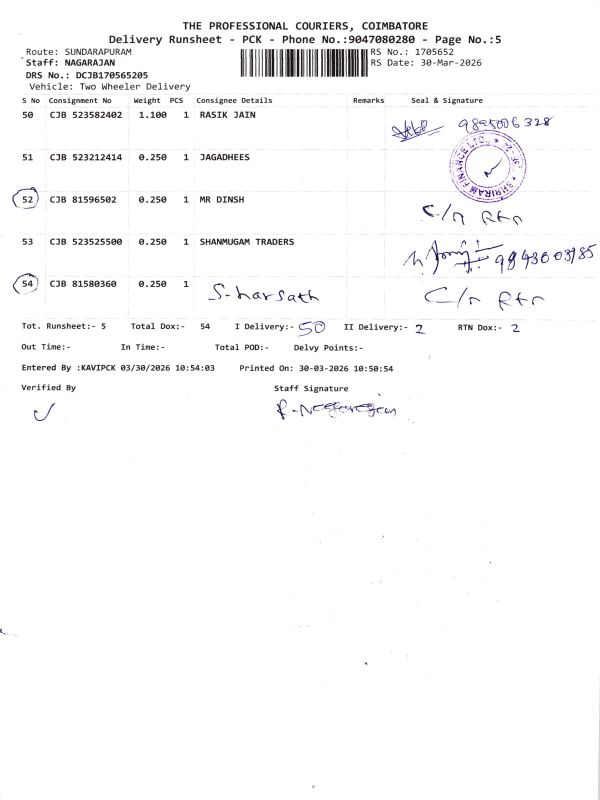 THE PROFESSIONAL COURIERS, COIMBATORE
Delivery Runsheet - PCK - Phone No.:9047080280 - Page No.:5
Route: SUNDARAPURAM RS No.: 1705652
Staff: NAGARAJAN RS Date: 30-Mar-2026
DRS No.: DCJB170565205
Vehicle: Two Wheeler Delivery
S No Consignment No Weight PCS Consignee Details Remarks Seal & Signature
50 CJB 523582402 1.100 1 RASIK JAIN
51 CJB 523212414 0.250 1 JAGADHEES
SHRIRAM FINANCE LTD.,
52 CJB 81596502 0.250 1 MR DINSH C/n Rtn
53 CJB 523525500 0.250 1 SHANMUGAM TRADERS
54 CJB 81580360 0.250 1 S-harsath C/n Rtn
Tot. Runsheet:- 5 Total Dox:- 54 I Delivery:- 50 II Delivery:- 2 RTN Dox:- 2
Out Time:- In Time:- Total POD:- Delvy Points:-
Entered By :KAVIPCK 03/30/2026 10:54:03 Printed On: 30-03-2026 10:50:54
Verified By Staff Signature
R-Nagarajan